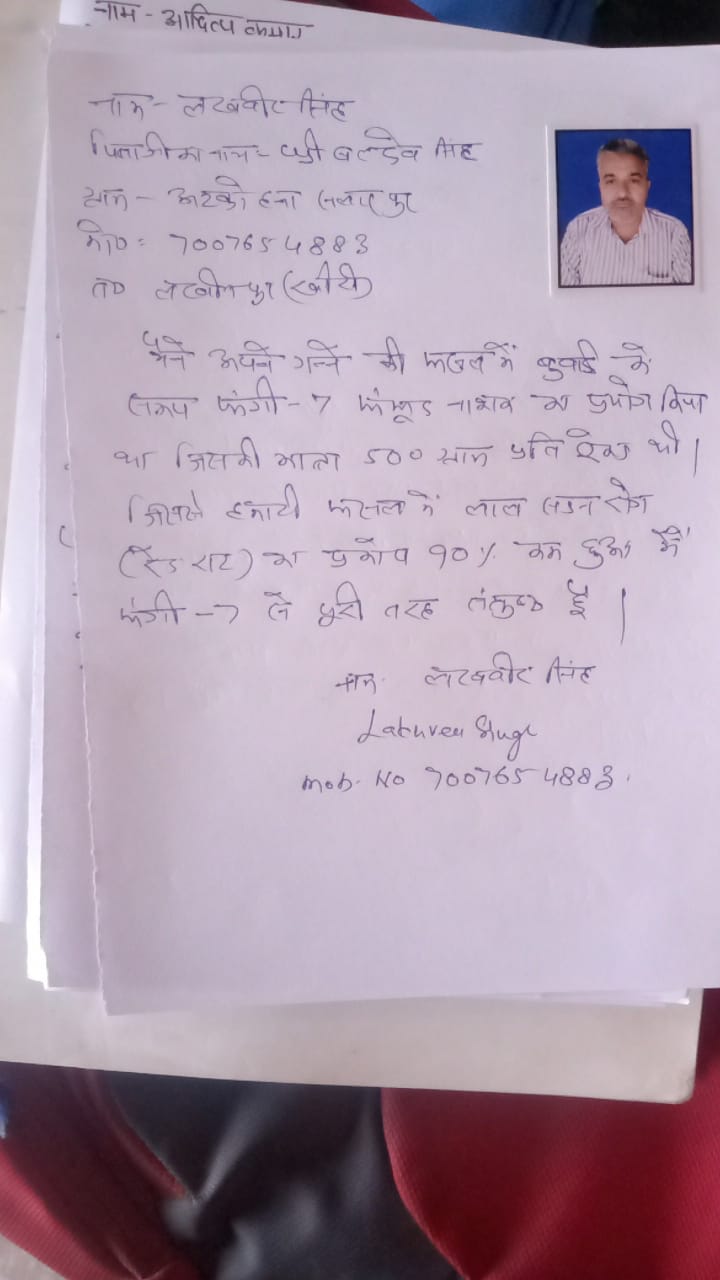 नाम - आदित्य कुमार
नाम - लखवीर सिंह
पिताजी का नाम - श्री बल्देव सिंह
ग्राम -
मो० : 7007654883
त० लखीमपुर (खीरी)
मैंने अपने गन्ने की फसल में बुवाई के
समय फंगी - 7 फंफूद नाशक का प्रयोग किया
था जिसकी मात्रा 500 ग्राम प्रति एकड़ थी |
जिससे हमारी फसल में लाल सडन रोग
(रेड राट) का प्रकोप 90% कम हुआ मैं
फंगी - 7 से पूरी तरह संतुष्ट हूँ |
नाम. लखवीर सिंह
Mob. No 7007654883.